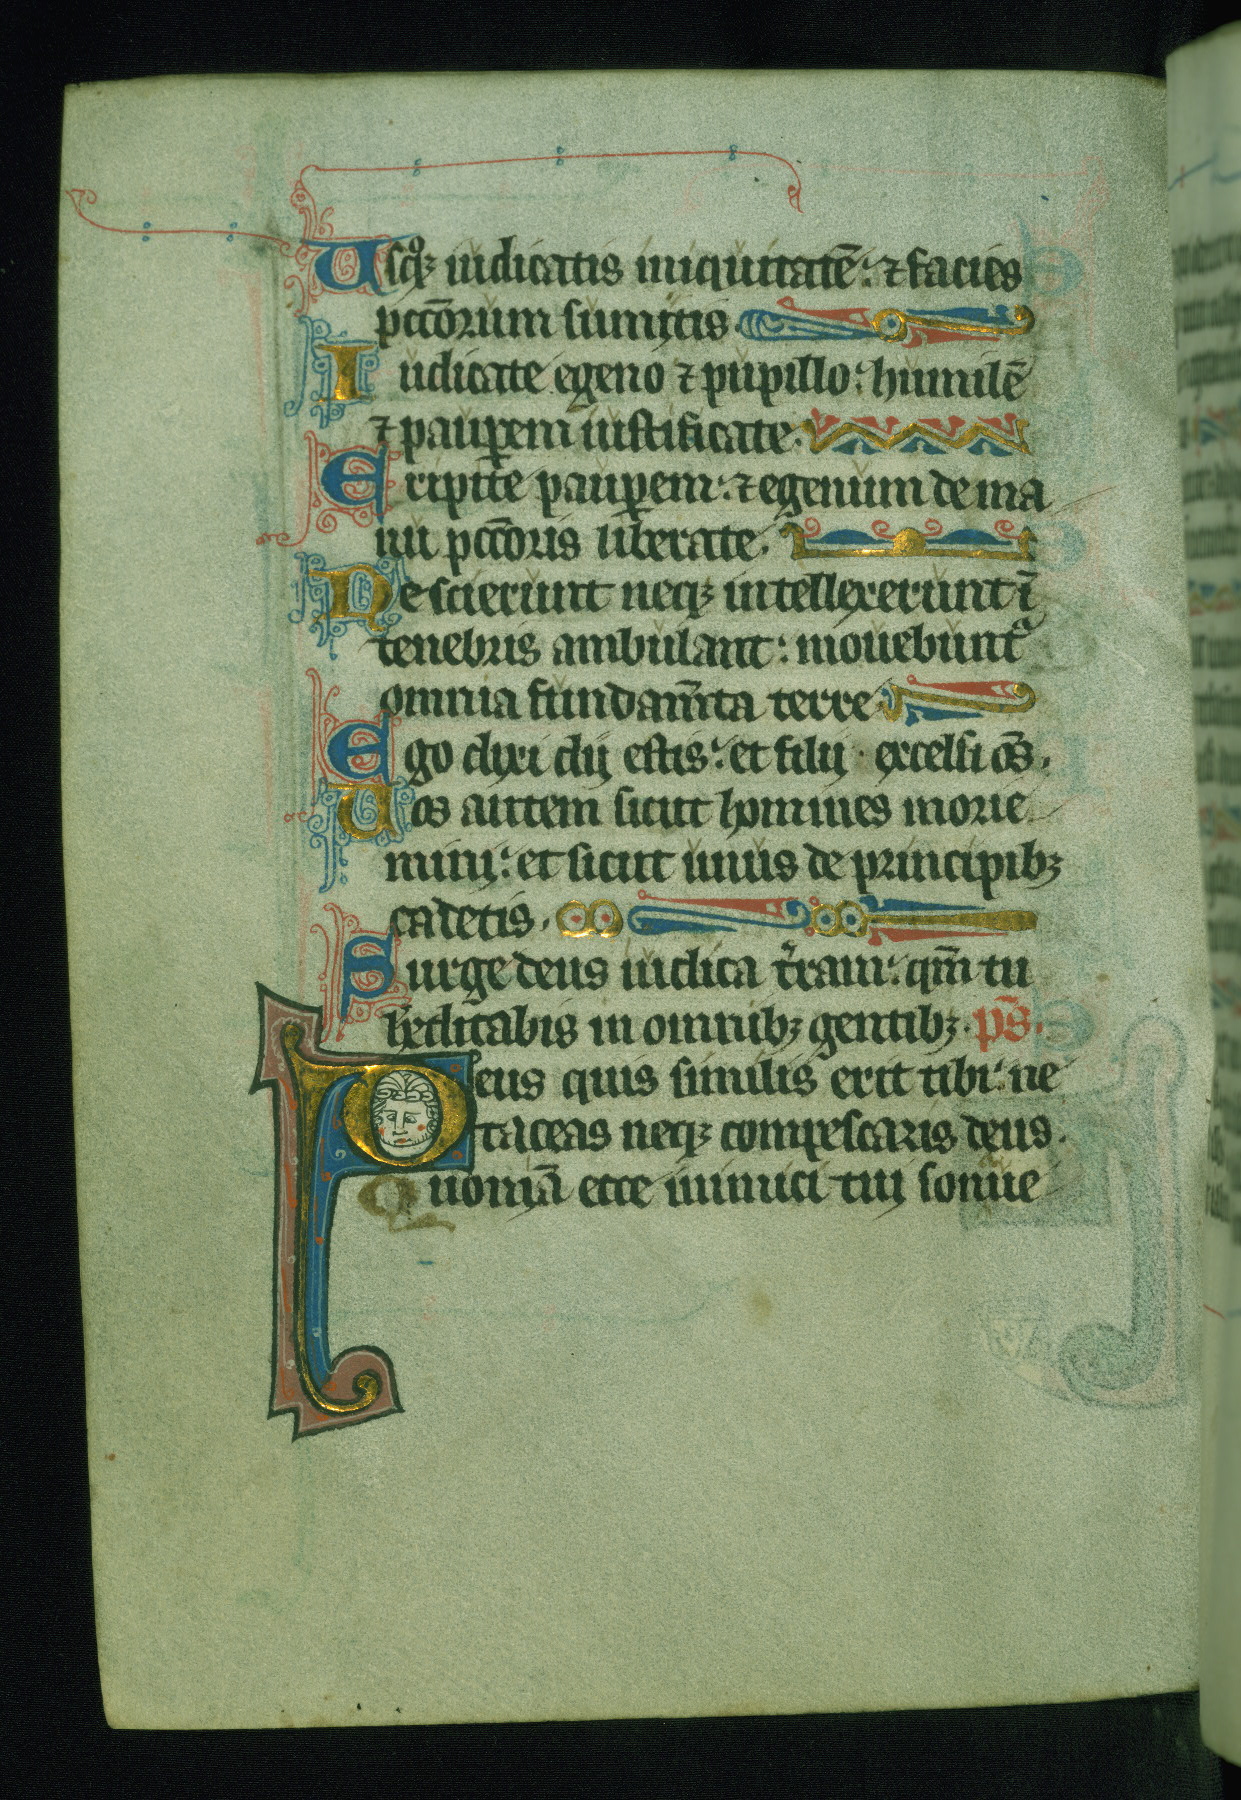 Usqꝫ iudicatis iniquitatē: ⁊ facies
pccōrum sumitis.
Iudicate egeno ⁊ pupillo: humilē
⁊ pauꝑem iustificate.
Eripite pauꝑem: ⁊ egenum de ma
nu pccōris liberate.
Nescierunt neqꝫ intellexerunt ī
tenebris ambulant: mouebuntᷣ
omnia fundam̄ta terre.
Ego dixi dij estis: et filij excelsi oēs.
Uos autem sicut homines morie
mini: et sicut unus de principibꝫ
cadetis.
Surge deus iudica t̄ram: qm̄ tu
h̄editabis in omnibꝫ gentibꝫ. pš.
Deus quis similis erit tibi: ne
taceas neqꝫ compescaris deus.
Quoniā ecce inimici tui sonue